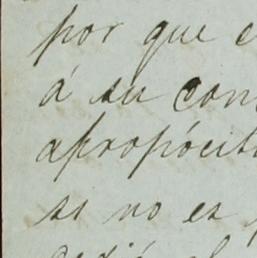 por que e
á su con
apropósit
si no es